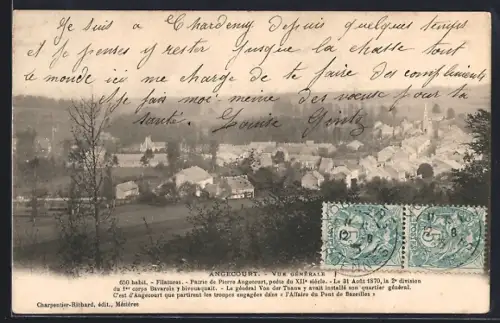 Je suis a Chardeny depuis quelques temps
et je penses y rester jusque la chasse tout
le monde ici me charge de te faire des compliments
Je fais moi-même des vœux pour ta
santé. Louise
ANGECOURT. - VUE GÉNÉRALE
650 habit. - Filatures. - Patrie de Pierre Angecourt, poète du XIIe siècle. - Le 31 Août 1870, la 2e division
du 1er corps Bavarois y bivouaquait. - Le général Von der Thann y avait installé son quartier général.
C'est d'Angecourt que partirent les troupes engagées dans « l'Affaire du Pont de Bazeilles »
Charpentier-Richard, édit., Mézières